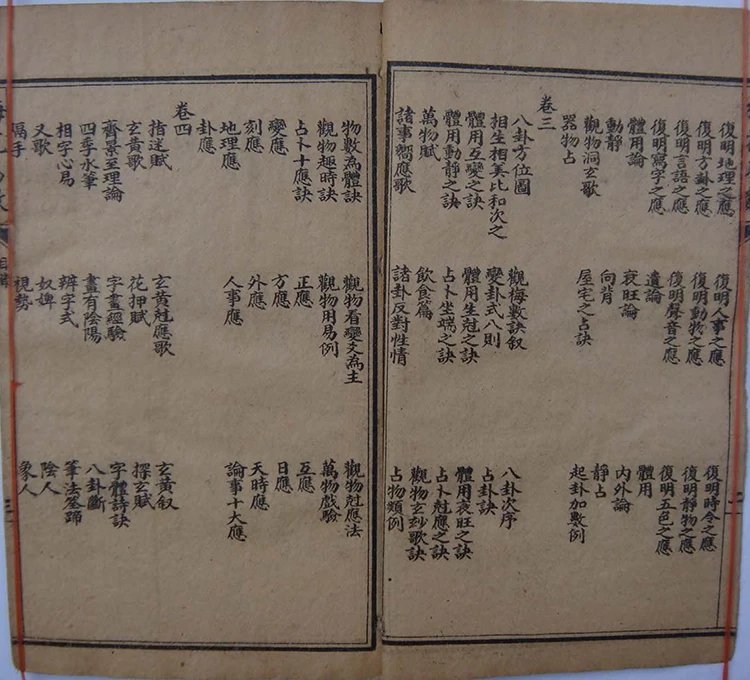 復明地理之應 復明人事之應 復明時令之應
復明方卦之應 復明動物之應 復明靜物之應
復明言語之應 復明聲音之應 復明五色之應
復明寫字之應 遺論 體用
體用論 衰旺論 內外論
動靜 向背 靜占
觀物洞玄歌 屋宅之占訣 起卦加數例
器物占
卷三
八卦方位圖 觀梅數訣叙 八卦次序
相生相美比和次之 變卦式八則 占卦訣
體用互變之訣 體用生尅之訣 體用衰旺之訣
體用動靜之訣 占卜坐端之訣 占卜尅應之訣
萬物賦 飲食篇 觀物玄妙歌訣
諸事響應歌 諸卦反對性情 占物類例
物數為體訣 觀物看變爻為主 觀物尅應法
觀物趣時訣 觀物用易例 萬物戲驗
占卜十應訣 正應 互應
變應 方應 日應
刻應 外應 天時應
地理應 人事應 論事十大應
卦應
卷四
指迷賦 玄黃尅應歌 玄黃叙
玄黃歌 花押賦 探玄賦
齊景至理論 字畫經驗 字體詩訣
四季水筆 畫有陰陽 八卦斷
相字心易 辨字式 筆法筌蹄
又歌 奴婢 陰人
隔手 視勢 象人